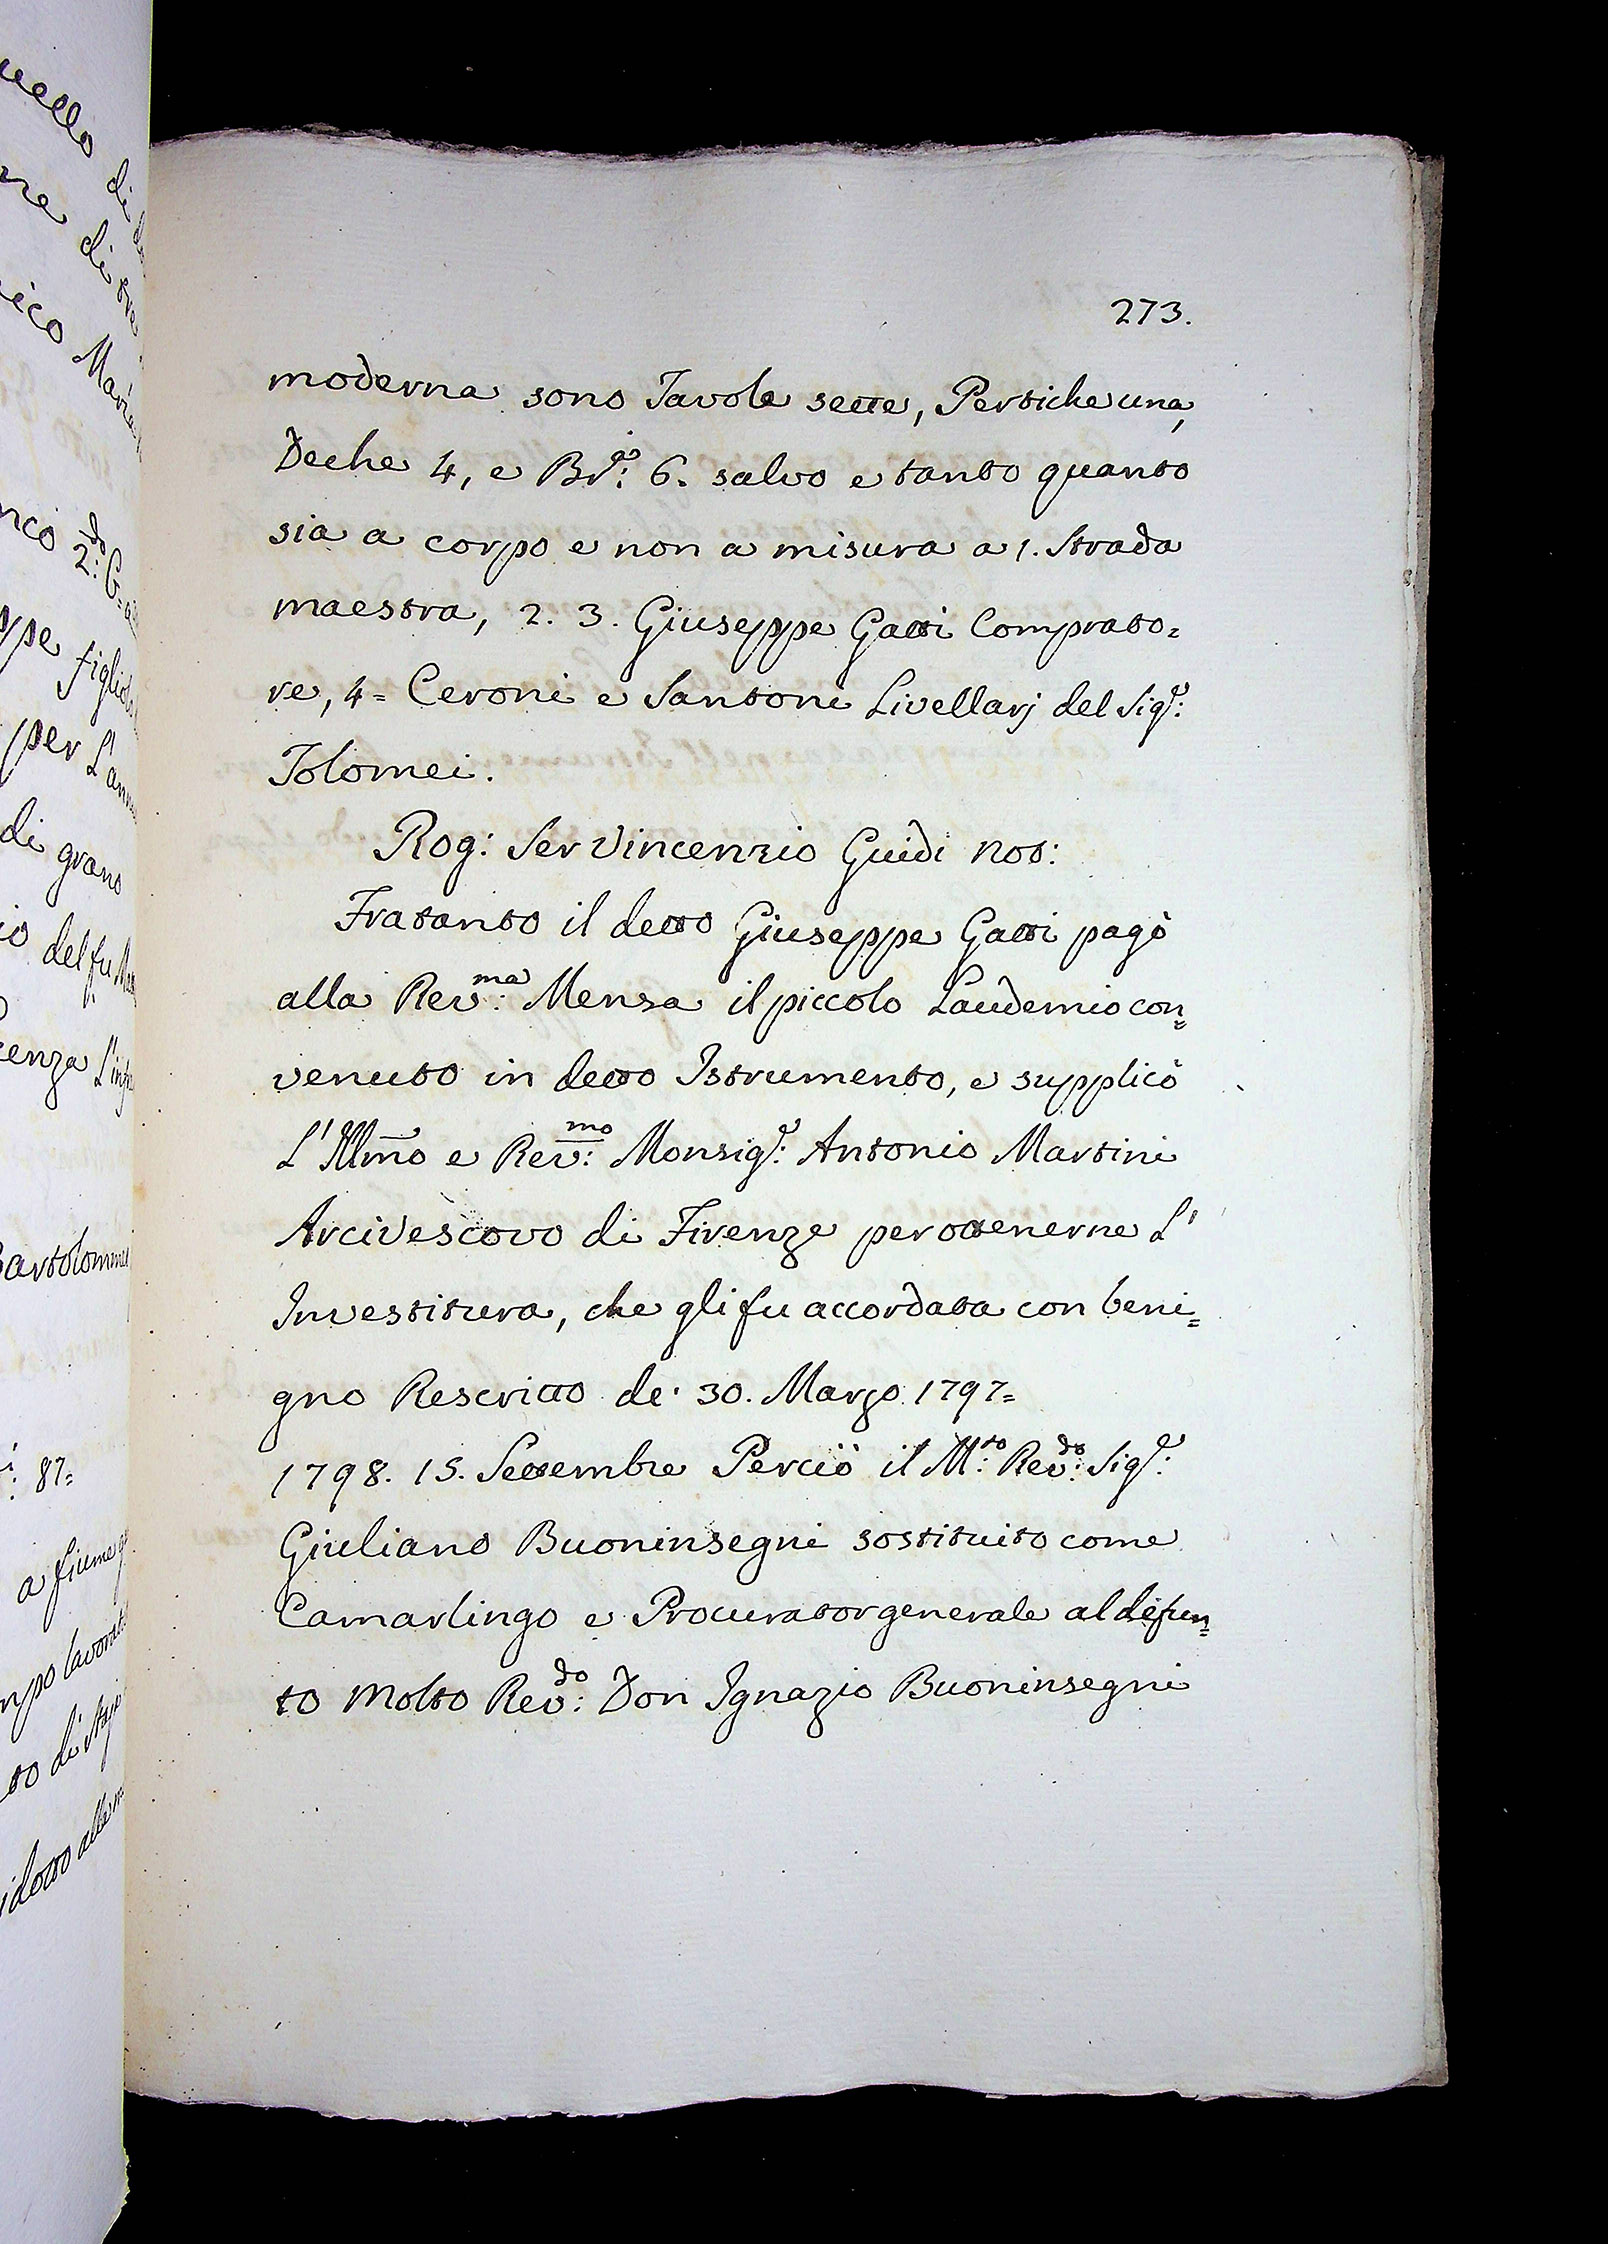 273.
moderna sono Tavole sette, Pertiche una,
Deche 4, e Br.e: 6. salvo e tanto quanto
sia a corpo e non a misura a 1. Strada
maestra, 2. 3. Giuseppe Gatti Comprato=
re, 4= Ceroni e Santoni Livellarj del Sig.e:
Tolomei.
Rog: Ser Vincenzio Guidi Not:
Fratanto il detto Giuseppe Gatti pagò
alla Rev:ma Mensa il piccolo Laudemio con=
venuto in detto Istrumento, e supplicò
L'Illmo e Rev:mo Monsig.e: Antonio Martini
Arcivescovo di Firenze per ottenerne L'
Investitura, che gli fu accordata con beni=
gno Rescritto de' 30. Marzo 1797=
1798. 15. Settembre Perciò il M:to Rev:do Sig.e:
Giuliano Buoninsegni sostituito come
Camarlingo e Procurator generale al defun=
to Molto Rev:do Don Ignazio Buoninsegni
di grano
per L'
87=
a fiume